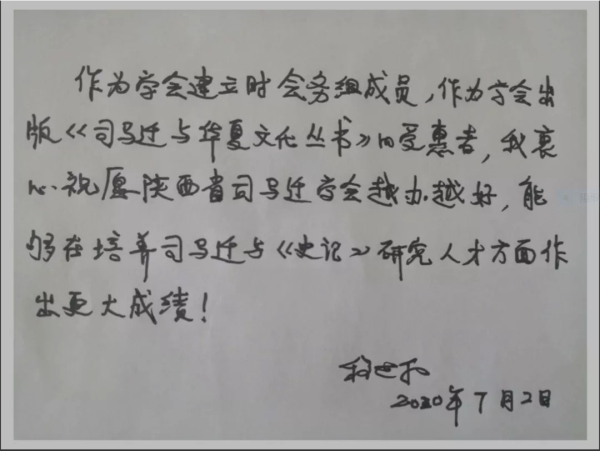 作为学会建立时会务组成员，作为学会出
版《司马迁与华夏文化丛书》的受惠者，我衷
心祝愿陕西省司马迁学会越办越好，能
够在培养司马迁与《史记》研究人才方面作
出更大成绩！
2020年7月2日